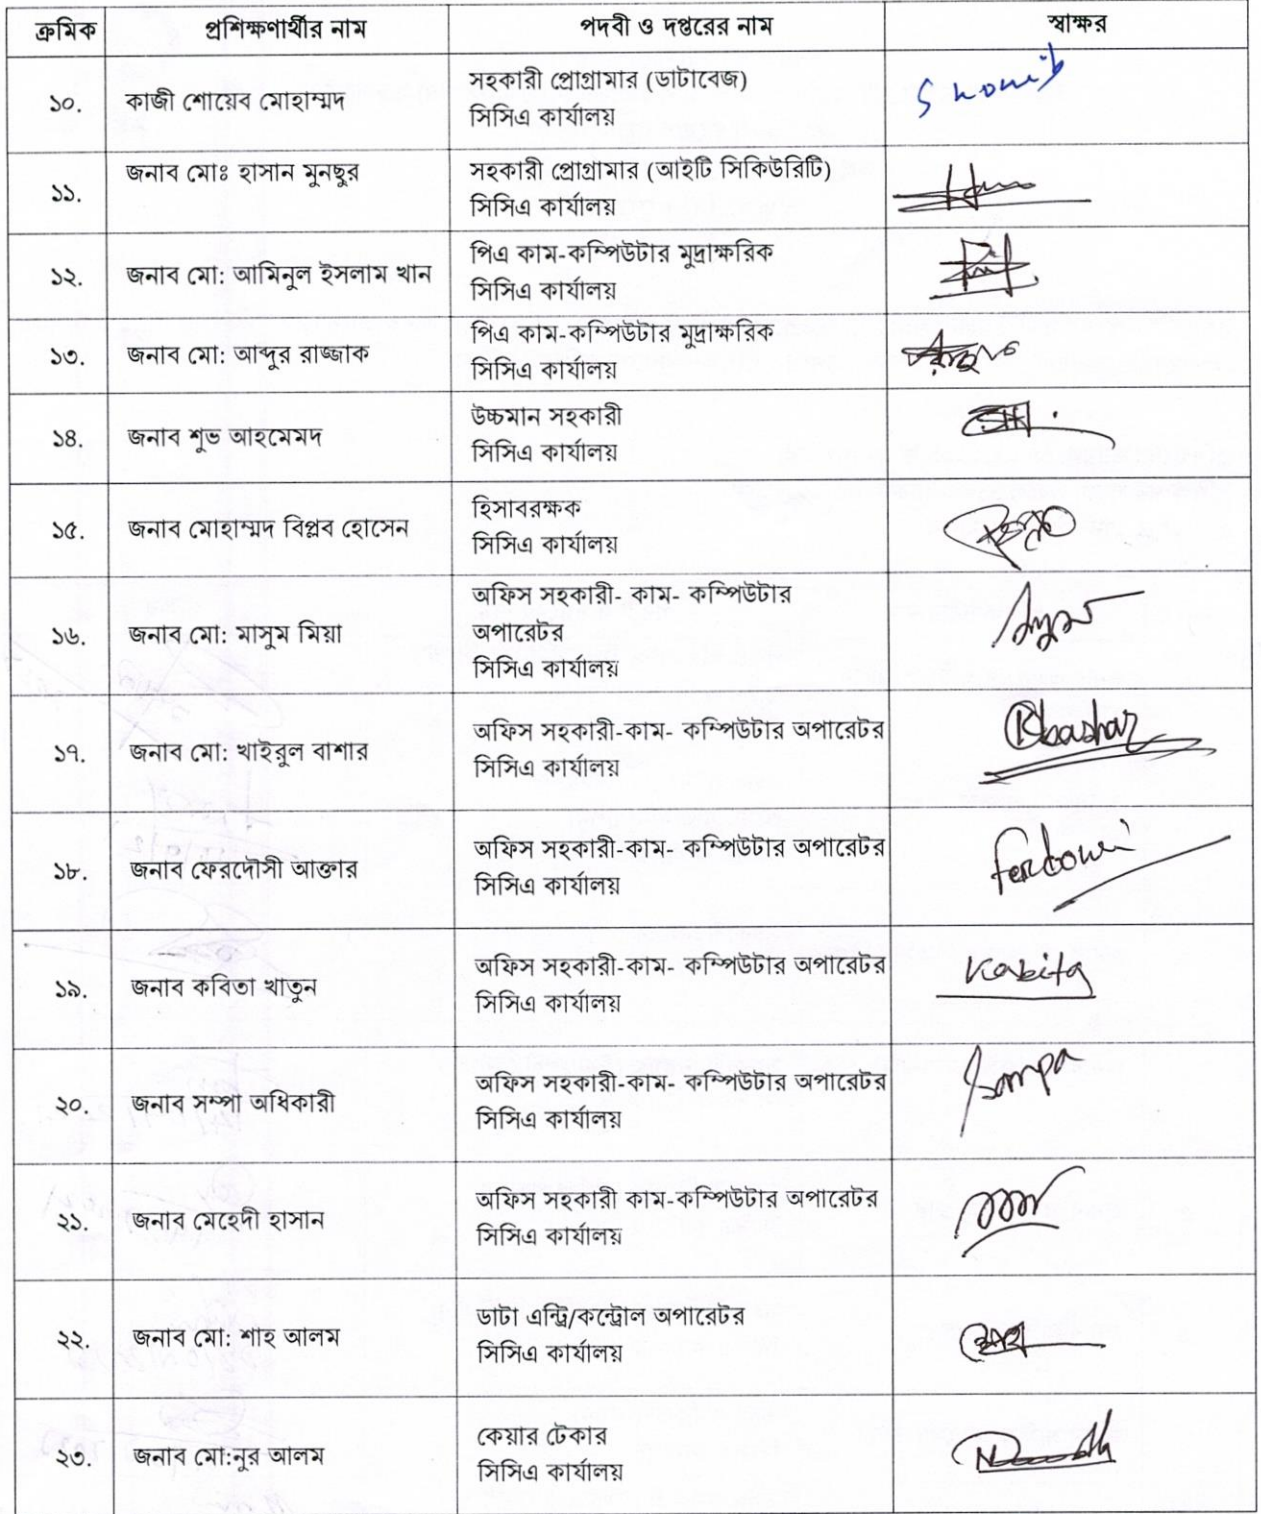 ক্রমিক প্রশিক্ষণার্থীর নাম পদবী ও দপ্তরের নাম স্বাক্ষর
১০. কাজী শোয়েব মোহাম্মদ সহকারী প্রোগ্রামার (ডাটাবেজ)
সিসিএ কার্যালয়
Shoaib
১১. জনাব মোঃ হাসান মুনছুর সহকারী প্রোগ্রামার (আইটি সিকিউরিটি)
সিসিএ কার্যালয়
১২. জনাব মো: আমিনুল ইসলাম খান পিএ কাম-কম্পিউটার মুদ্রাক্ষরিক
সিসিএ কার্যালয়
১৩. জনাব মো: আব্দুর রাজ্জাক পিএ কাম-কম্পিউটার মুদ্রাক্ষরিক
সিসিএ কার্যালয়
১৪. জনাব শুভ আহমেমদ উচ্চমান সহকারী
সিসিএ কার্যালয়
১৫. জনাব মোহাম্মদ বিপ্লব হোসেন হিসাবরক্ষক
সিসিএ কার্যালয়
১৬. জনাব মো: মাসুম মিয়া অফিস সহকারী- কাম- কম্পিউটার
অপারেটর
সিসিএ কার্যালয়
১৭. জনাব মো: খাইরুল বাশার অফিস সহকারী-কাম- কম্পিউটার অপারেটর
সিসিএ কার্যালয়
Kbashar
১৮. জনাব ফেরদৌসী আক্তার অফিস সহকারী-কাম- কম্পিউটার অপারেটর
সিসিএ কার্যালয়
Ferdowsi
১৯. জনাব কবিতা খাতুন অফিস সহকারী-কাম- কম্পিউটার অপারেটর
সিসিএ কার্যালয়
Kabita
২০. জনাব সম্পা অধিকারী অফিস সহকারী-কাম- কম্পিউটার অপারেটর
সিসিএ কার্যালয়
Sampa
২১. জনাব মেহেদী হাসান অফিস সহকারী কাম-কম্পিউটার অপারেটর
সিসিএ কার্যালয়
২২. জনাব মো: শাহ আলম ডাটা এন্ট্রি/কন্ট্রোল অপারেটর
সিসিএ কার্যালয়
২৩. জনাব মো:নুর আলম কেয়ার টেকার
সিসিএ কার্যালয়